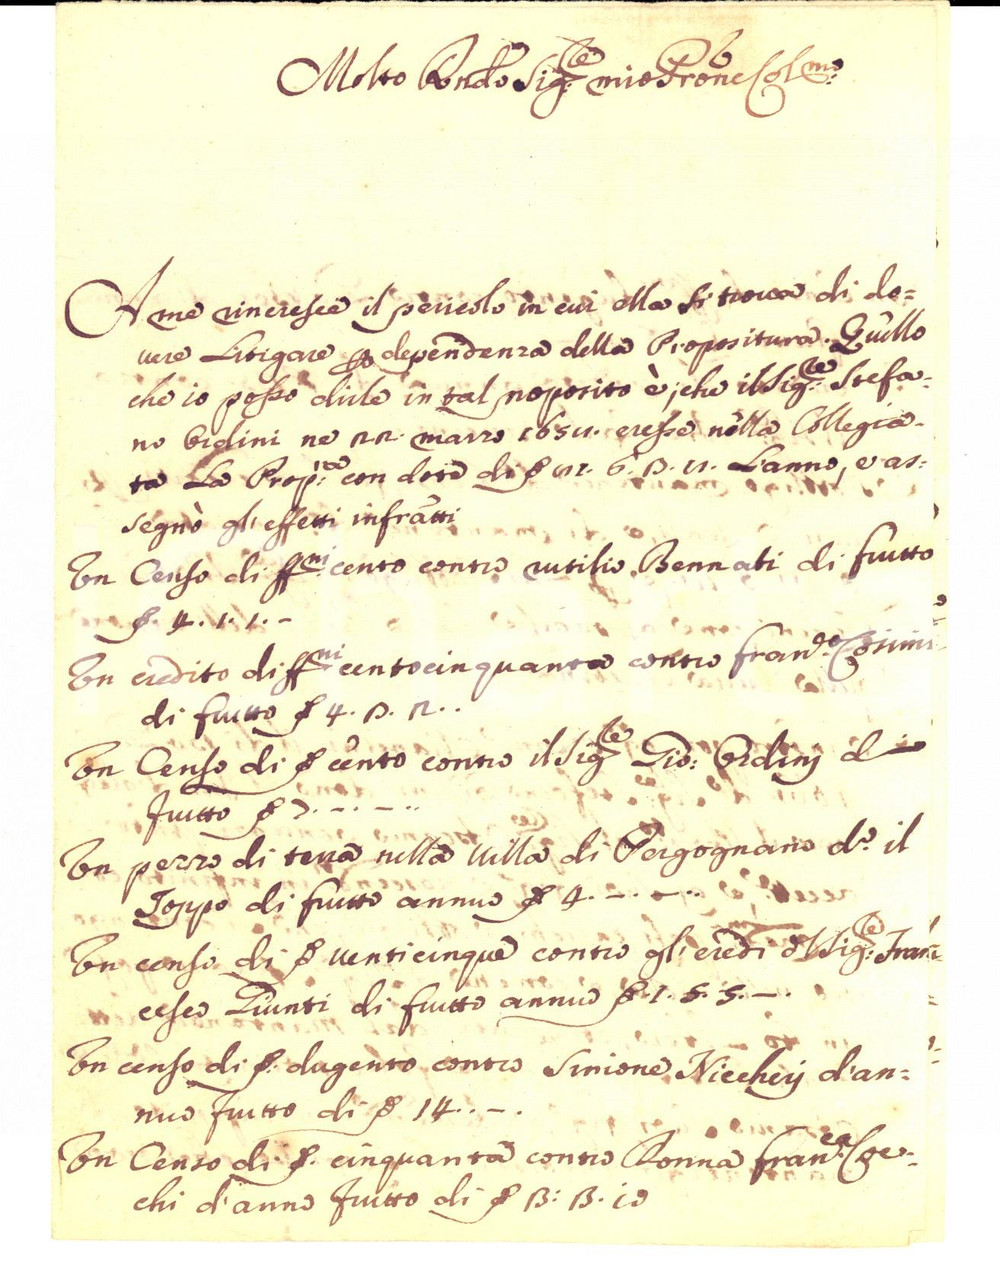 Molto Rndo Sigre mio Prone Colmo
A me rincresce il pericolo in cui ella si trova di do=
vere Litigare p dependenza della Propositura. Quello
che io posso dirle in tal proposito è, che il Sigre Stefa=
no Ordini ne 22 marzo 1651. eresse nella Collegia=
ta La Propra con dote di L'anno, e as=
segnò gl'effetti infratti
Un Censo di ffni cento contro Rutilio Bennati di frutto
4. 1. 1. -
Un credito di ffni centocinquanta contro Frano Cosimi
di frutto 4. 13. 12. .
Un Censo di cento contro il Sigre Gio: Ordinj d
frutto 7. - . - . .
Un pezzo di terra nella Villa di Pergognano do il
Toppo di frutto annuo 4. - . - .
Un censo di venticinque contro gl'eredi dl Sigre Fran=
cesco Giunti di frutto annuo 1. 5. 5. - .
Un censo di dugento contro Simone Nicchij d'an=
nuo frutto di 14. . - .
Un Censo di cinquanta contro Donna Franca Ce=
chi d'anno frutto di 13: 13. 10